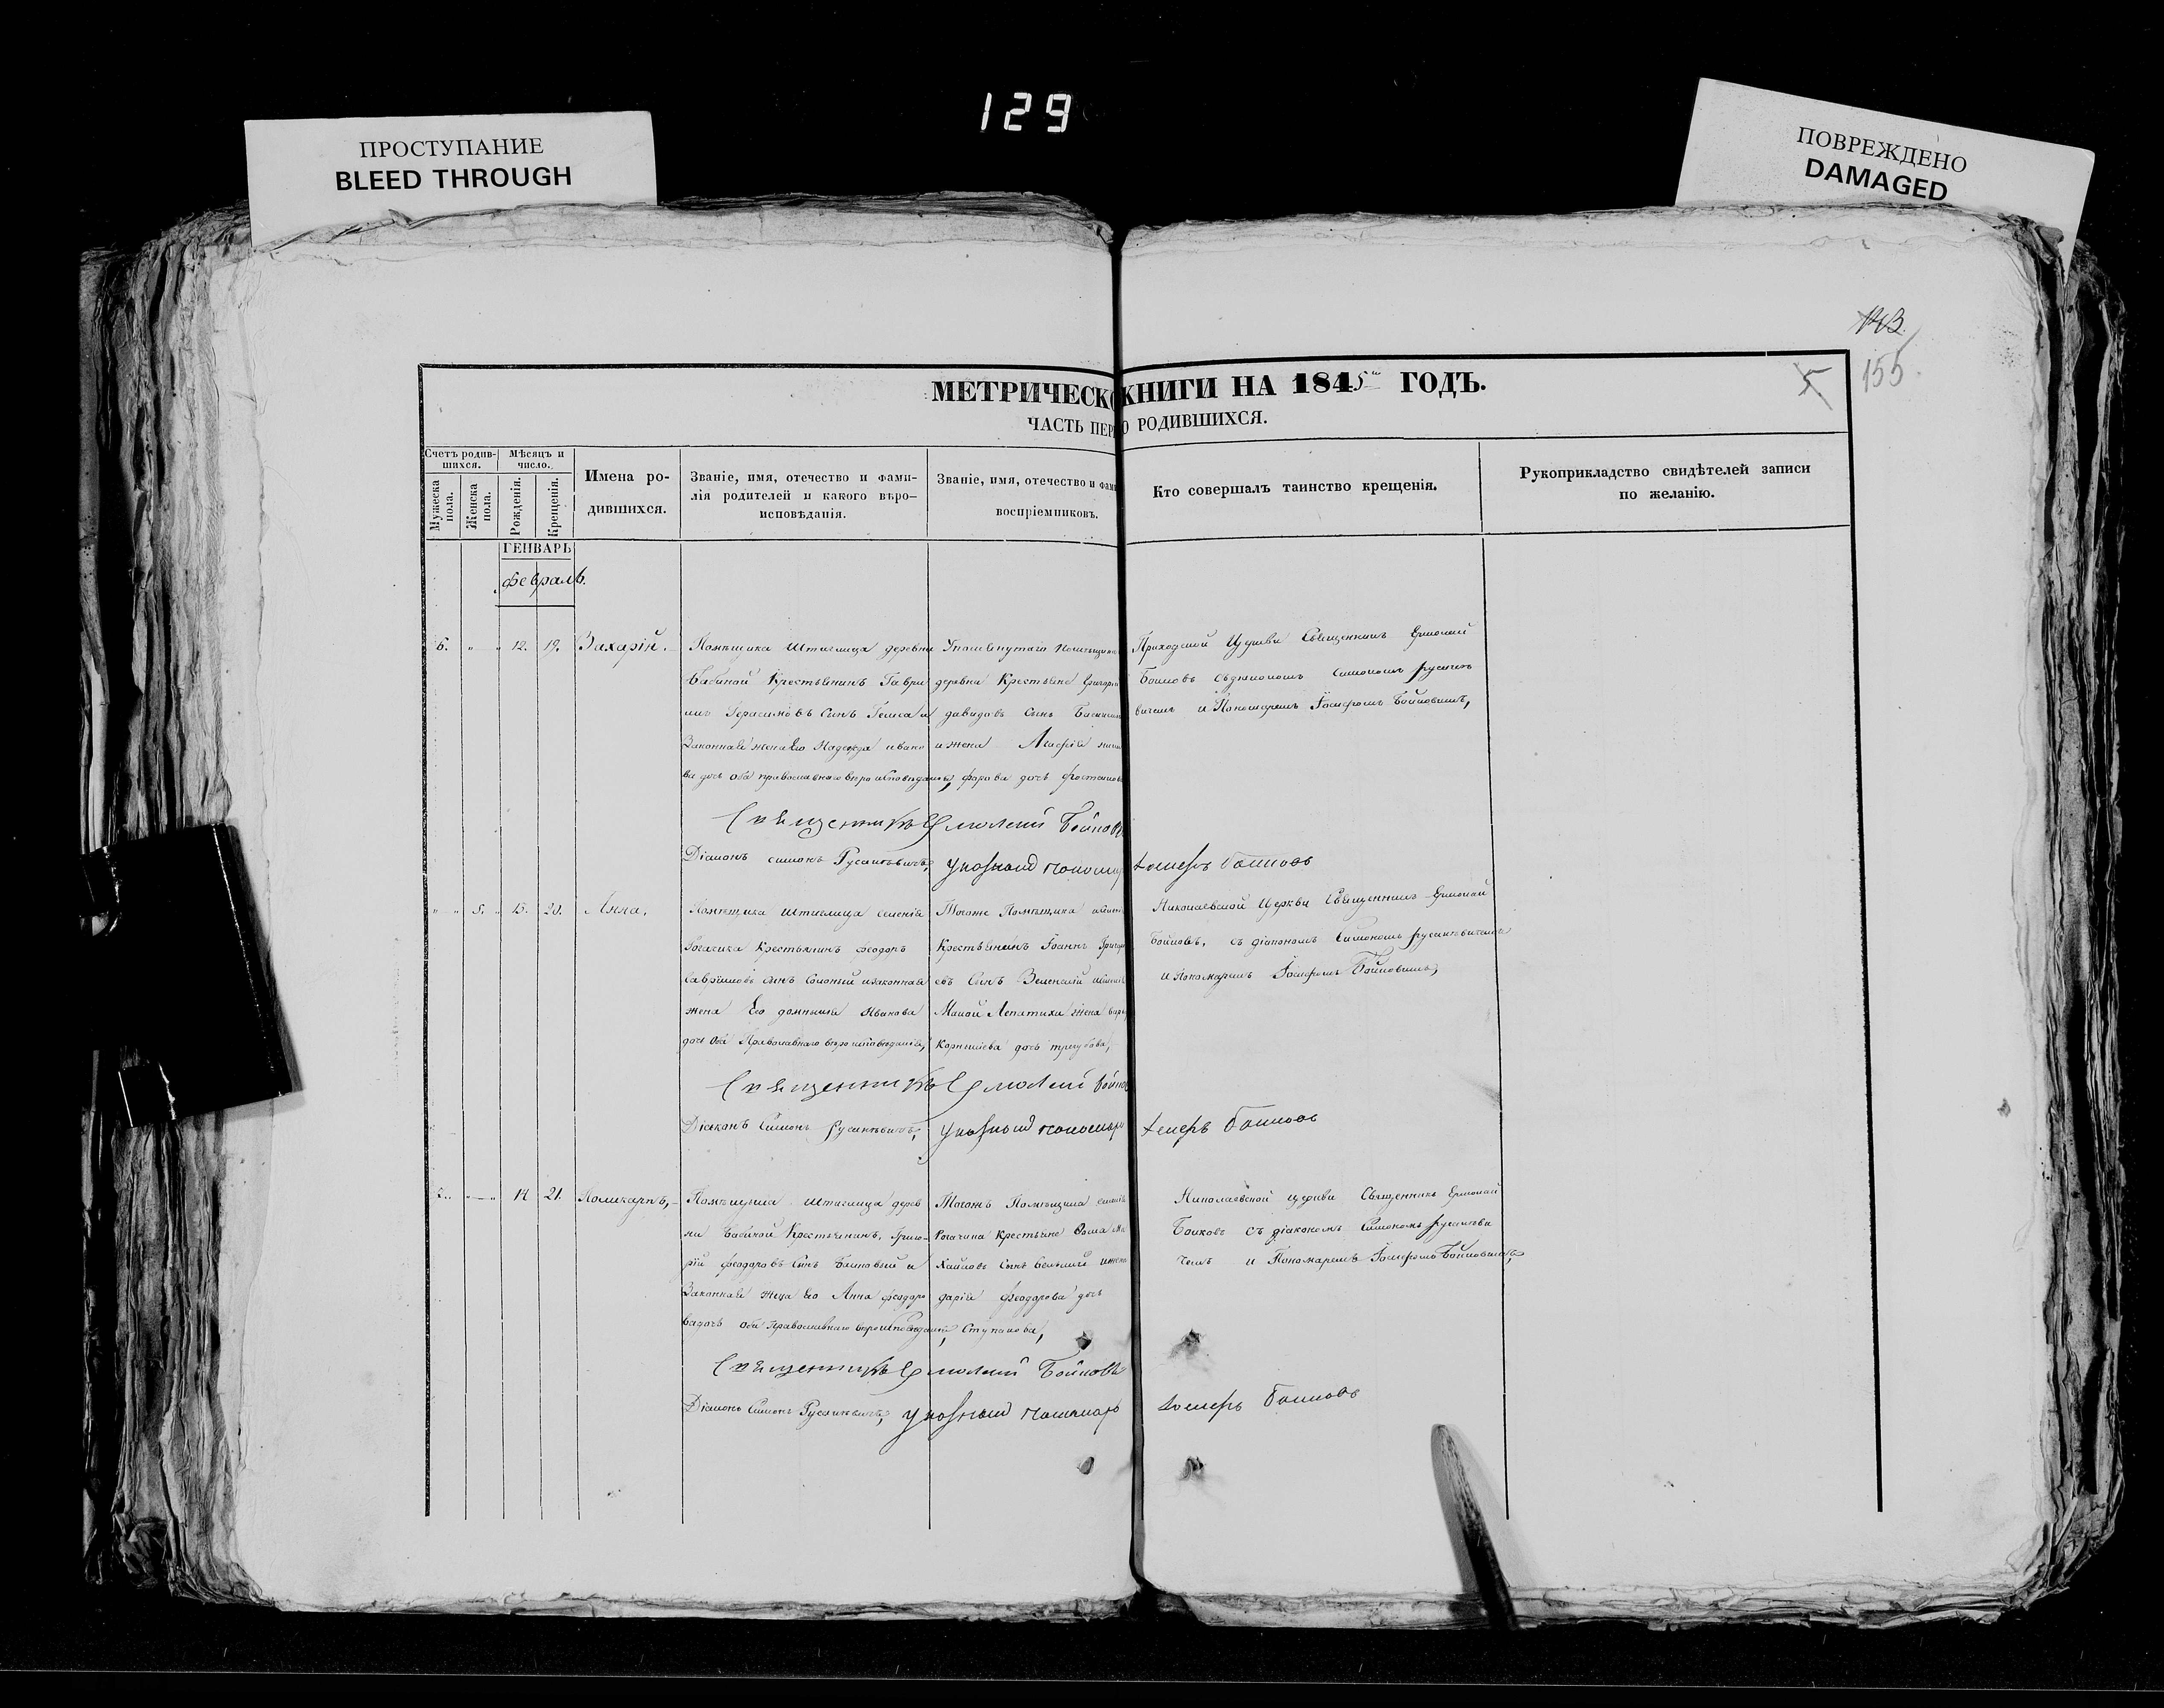 129
ПРОСТУПАНИЕ
BLEED THROUGH
ПОВРЕЖДЕНО
DAMAGED
143
155
5
МЕТРИЧЕСКО КНИГИ НА 1845 ГОДЪ.
ЧАСТЬ ПЕР О РОДИВШИХСЯ.
Счетъ родив-
шихся.
Мужеска
пола.
Женска
пола.
Мѣсяцъ и
число.
Рожденія.
Крещенія.
Имена ро-
дившихся.
Званіе, имя, отечество и фами-
лія родителей и какого вѣро-
исповѣданія.
Званіе, имя, отечество и фами
воспріемниковъ.
Кто совершалъ таинство крещенія.
Рукоприкладство свидѣтелей записи
по желанію.
ГЕНВАРЬ
февраль.
6. " " 12. 19. Захарій.
Помѣщика Штиглица деревни
Бабиной Крестьянинъ Гаври
Герасимовъ сынъ и
Законная жена Его Надежда Ивано
ва дочь оба православнаго вѣроисповѣданія,
Упомянутаго Помѣщика
деревни Крестьяне Григорій
давидовъ сынъ
и жена Агафія
дочь
Приходской Церкви Священникъ Ермолай
Бойковъ съ діакономъ Симономъ
вичемъ и Пономаремъ Іосифомъ Бойковымъ,
Священникъ Ермолай Бойковъ
Діаконъ Симонъ Русаневичъ, указный пономарь Іосифъ Бойковъ
" " 5. " 15. 20. Анна.
Помѣщика Штиглица селенія
Рогачика Крестьянинъ Феодоръ
сынъ и законная
жена Его Иванова
дочь оба Православнаго вѣроисповѣданія,
Тогоже Помѣщика
Крестьянинъ Іоаннъ Григорь
евъ сынъ Зеленскій
Малой Лепатихи жена
дочь
Николаевской Церкви Священникъ Ермолай
Бойковъ, съ діакономъ Симономъ Русаневичемъ
и Пономаремъ Іосифомъ Бойковымъ,
Священникъ Ермолай Бойковъ
Діаконъ Симонъ Русаневичъ, указный пономарь Іосифъ Бойковъ
7. " " 14 21. Поликарпъ,
Помѣщика Штиглица дерев
ни Бабиной Крестьянинъ, Григо-
рій феодоровъ сынъ и
Законная жена Его Анна феодоро
ва дочь оба Православнаго вѣроисповѣданія,
Тогожъ Помѣщика селенія
Рогачика Крестьяне
сынъ и жена
дарія Феодорова дочь
Ступакова,
Николаевской церкви Священникъ Ермолай
Бойковъ съ діакономъ Симономъ Русаневи
чемъ и Пономаремъ Іосифомъ Бойковымъ,
Священникъ Ермолай Бойковъ
Діаконъ Симонъ Русаневичъ, указный пономарь Іосифъ Бойковъ